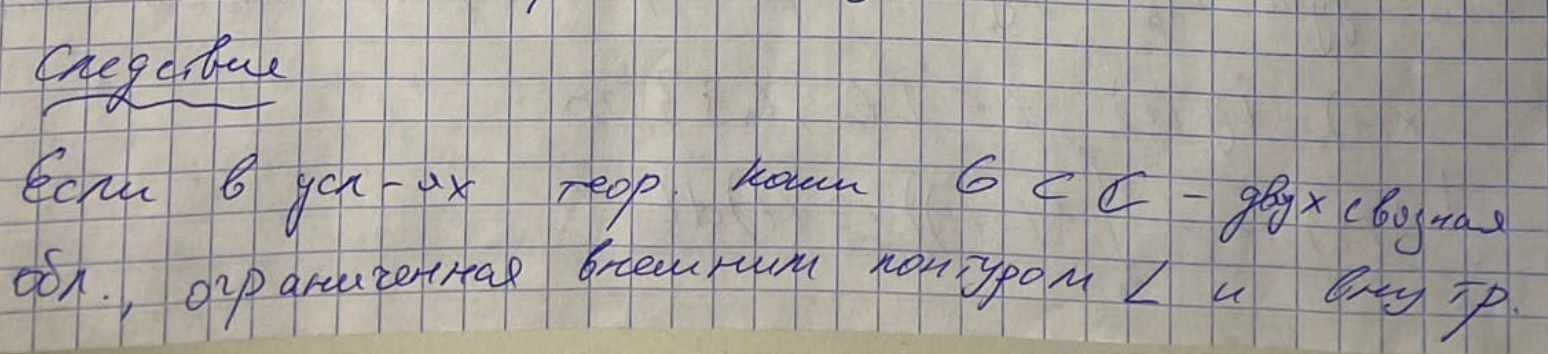 Следствие
Если в усл-ях теор. Коши G ⊂ ℂ - двухсвязная
обл., ограниченная внешним контуром L и внутр.